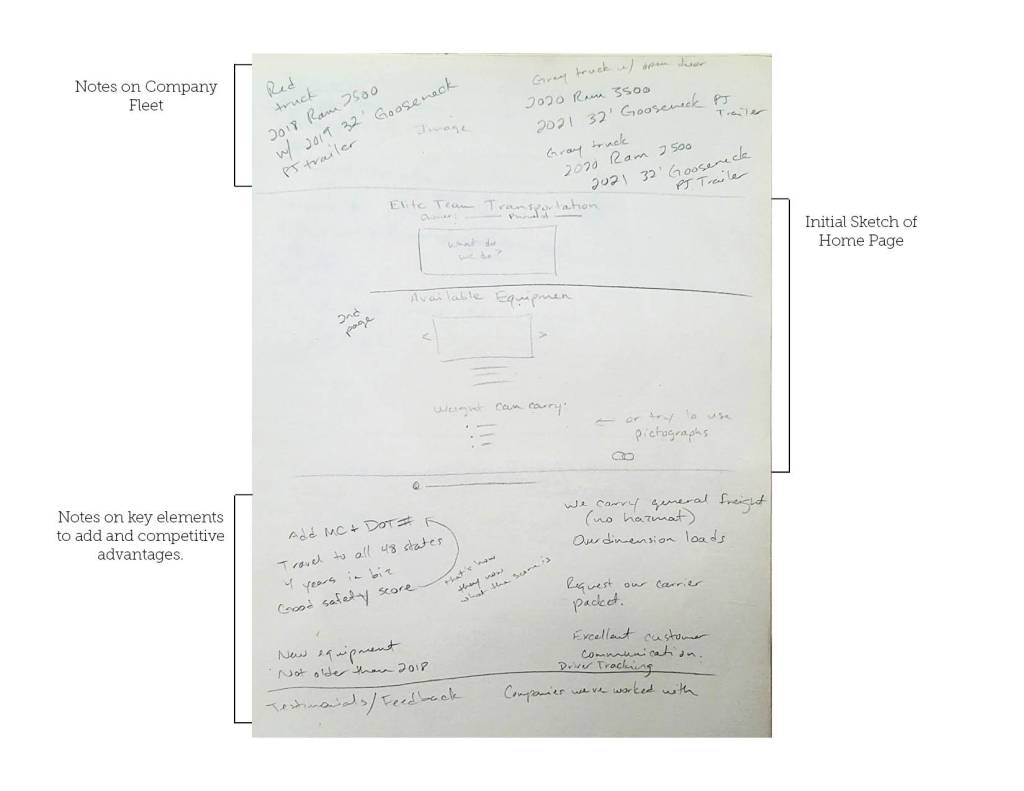 Notes on Company
Fleet
Red
truck
2018 Ram 2500
w/ 2019 32' Gooseneck
PJ trailer
Image
Gray truck w/ open door
2020 Ram 3500
2021 32' Gooseneck PJ
Trailer
Gray truck
2020 Ram 2500
2021 32' Gooseneck
PJ Trailer
Initial Sketch of
Home Page
Elite Team Transportation
Owner:
What do
we do?
Available Equipmen
2nd
page
< >
Weight can carry:
← or try to use
pictographs
Notes on key elements
to add and competitive
advantages.
Add MC + DOT #
Travel to all 48 states
4 years in biz
Good safety score
that's how
they now
what the score is
New equipment
Not older than 2018
We carry general freight
(no hazmat)
Overdimension loads
Request our carrier
packet.
Excellent customer
communication.
Driver Tracking
Testimonials/Feedback
Companies we've worked with